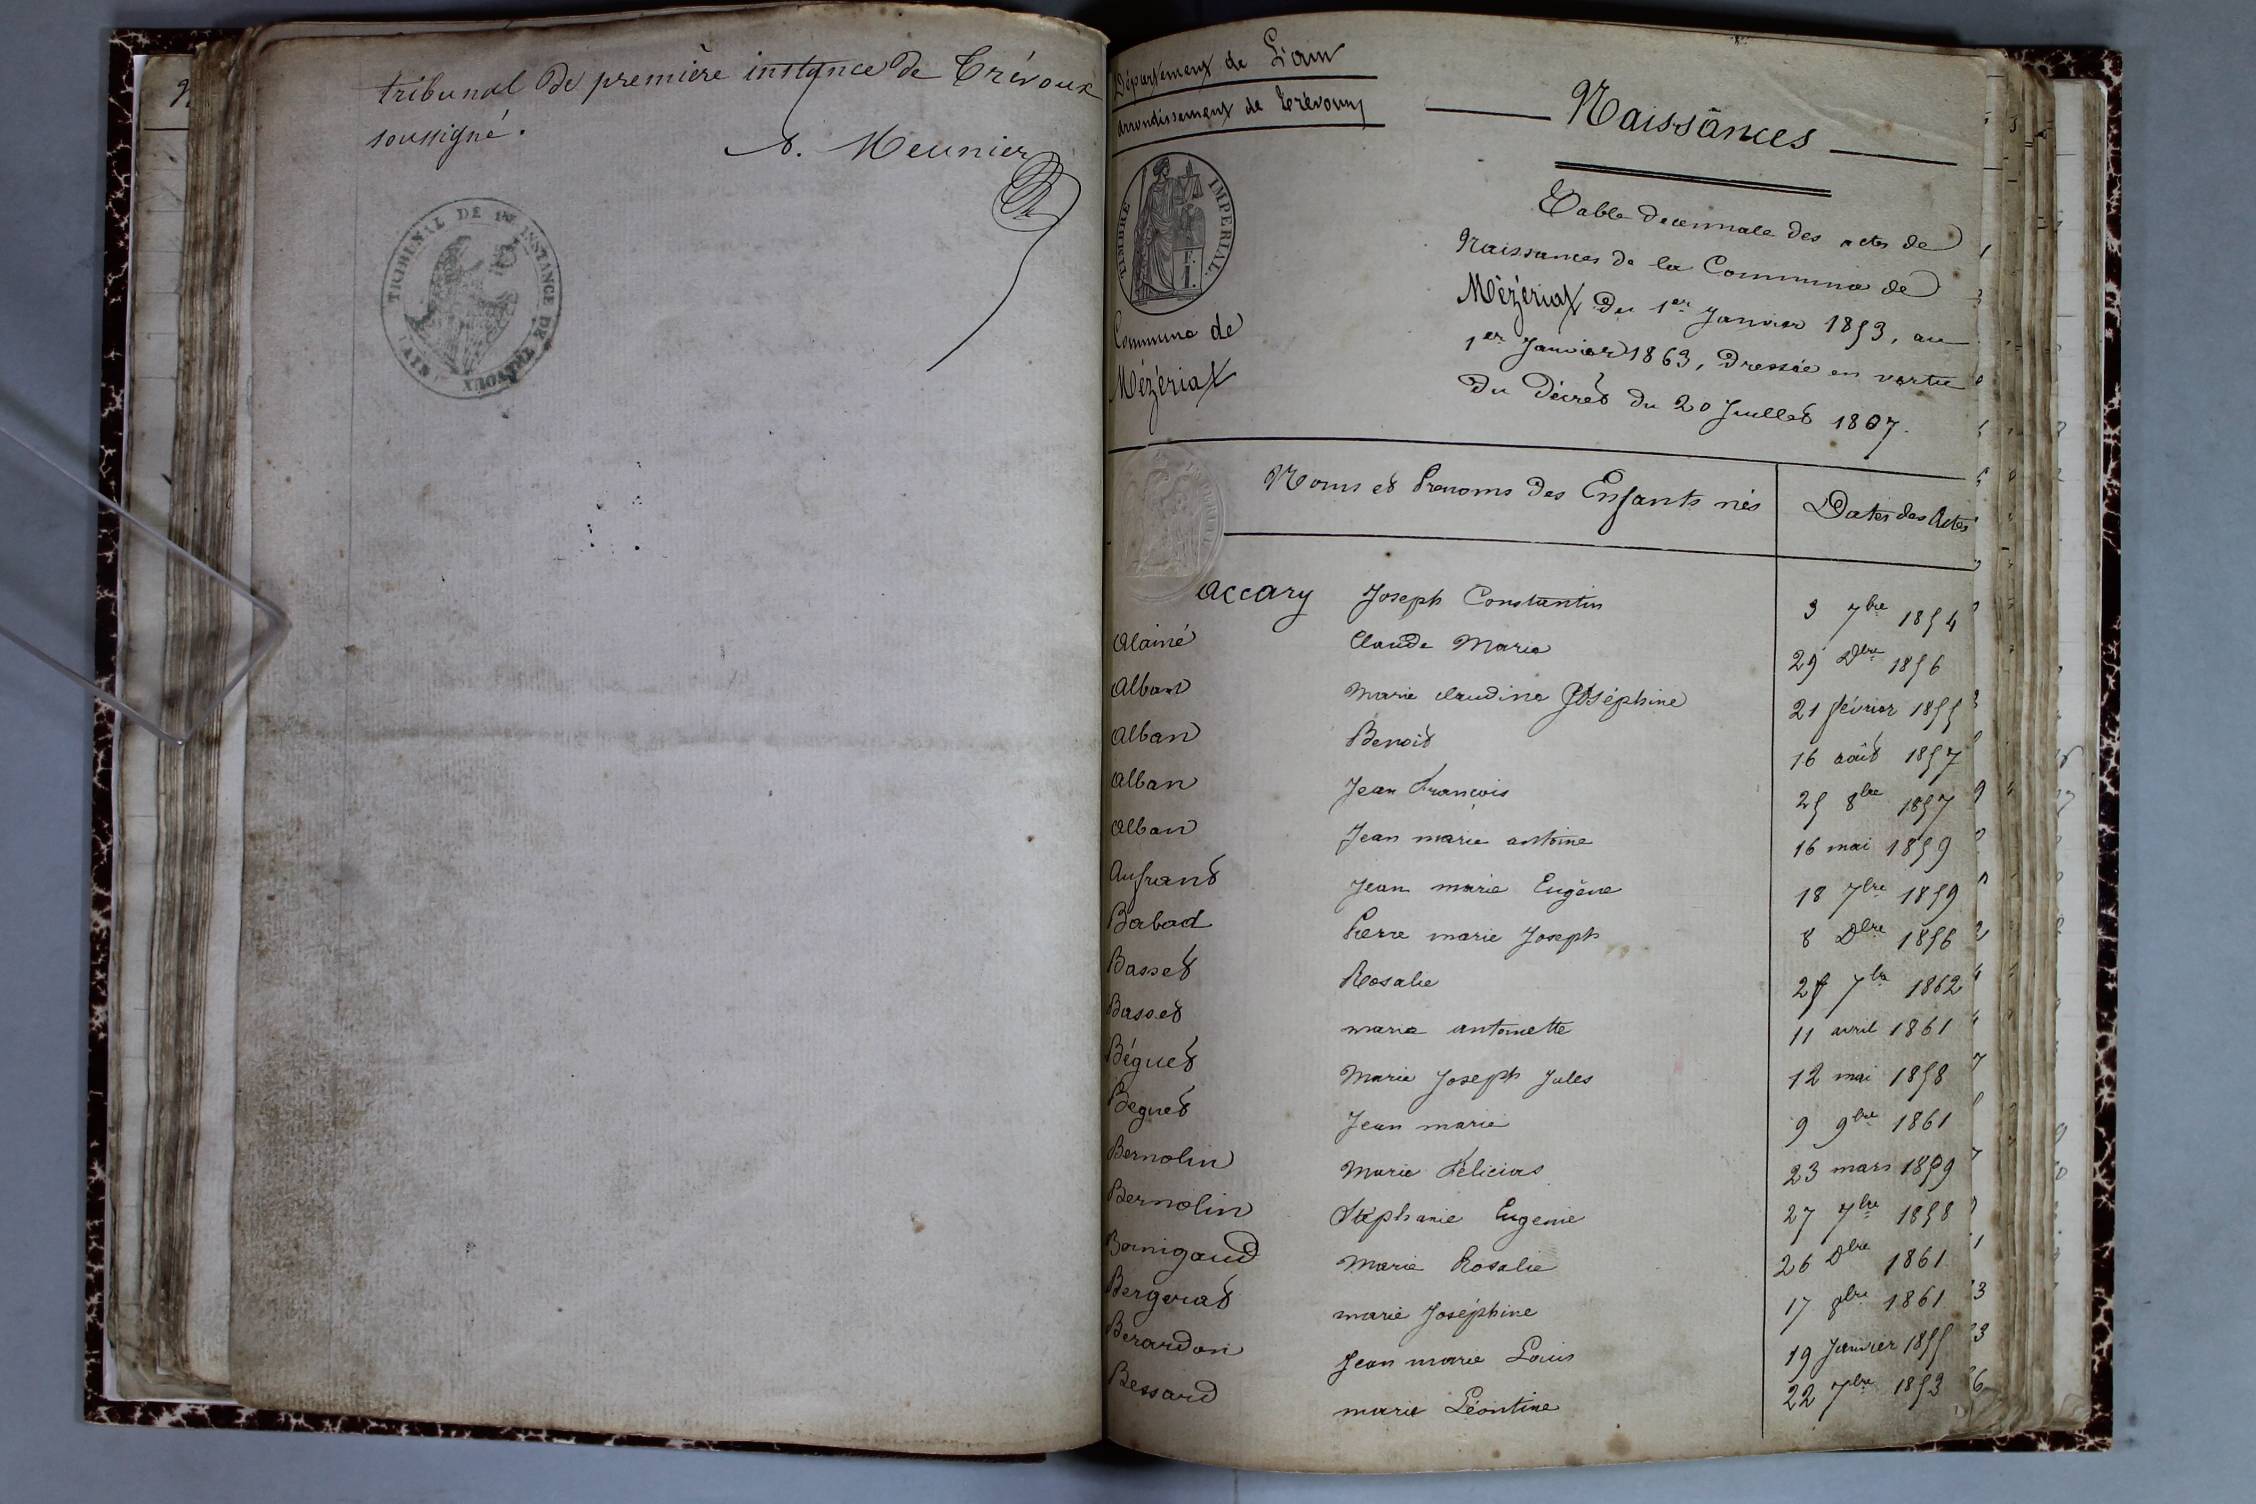 tribunal de première instance de Trévoux
soussigné.
Meunier
TRIBUNAL DE 1ERE INSTANCE DE TRÉVOUX (AIN)
Département de L'ain
arrondissement de trévoux
TIMBRE IMPERIAL
Commune de
Mézériat
Naissances
Table decennale des actes de
Naissances de la Commune de
Mézériat du 1er Janvier 1853, au
1er Janvier 1863, Dressée en vertu
du Décret du 20 Juillet 1807.
Noms et Prenoms des Enfants nés Dates des Actes
Accary Joseph Constantin 3 7bre 1854
Alainé Claude Marie 29 Dbre 1856
Alban Marie claudine Joséphine 21 février 1855
Alban Benoit 16 août 1857
Alban Jean François 25 8bre 1857
Alban Jean marie antoine 16 mai 1859
Aufrant Jean marie Eugène 18 7bre 1859
Babad Pierre marie Joseph 8 Dbre 1856
Basset Rosalie 7bre 1862
Basset marie antoinette 11 avril 1861
Béguet Marie Joseph Jules 12 mai 1858
Beguet Jean marie 9 9bre 1861
Bernolin Marie Félicias 23 mars 1859
Bernolin Stéphanie Eugenie 27 7bre 1858
Marie Rosalie 26 Dbre 1861
Bergerat marie Joséphine 17 1861
Berardan Jean marie Louis 19 Janvier 1855
Bessard marie Léontine 22 7bre 1853